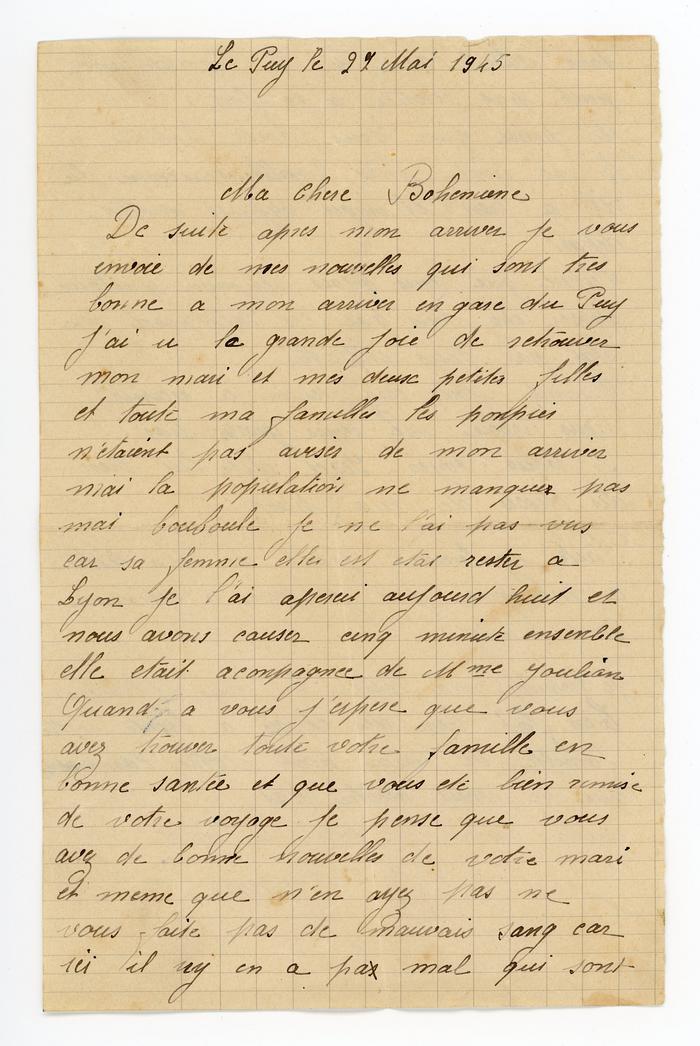 Le Puy le 27 Mai 1945
Ma chere Bohemiene
De suite apres mon arriver je vous
envoie de mes nouvelles qui sont tres
bonne a mon arriver en gare du Puy
j'ai u la grande joie de retrouver
mon mari et mes deux petites filles
et toute ma familles les pompier
n'étaient pas aviser de mon arriver
mai la population ne manquer pas
mai bouboule je ne l'ai pas vus
car sa femme elles est etai rester a
Lyon je l'ai apercui aujourd huit et
nous avons causer cinq minute ensenble
elle etait acompagnee de Mme Joulian
Quand a vous j'espere que vous
avez trouver toute votre famille en
bonne santée et que vous ete bien remise
de votre voyage je pense que vous
avez de bonne nouvelles de votre mari
et meme que n'en ayez pas ne
vous faite pas de mauvais sang car
ici il ny en a pas mal qui sont